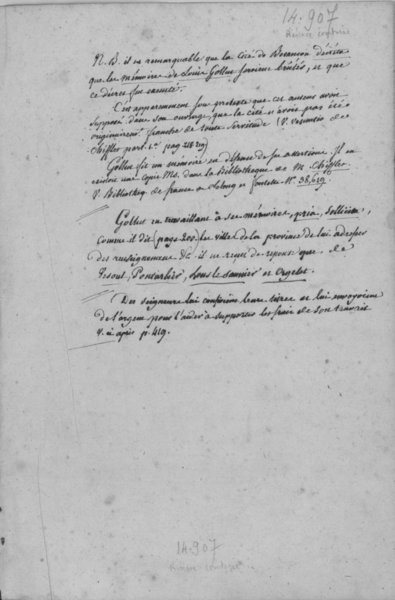 14.907
Réserve comtoise
N. B. il est remarquable que la cité de Besancon décréta
que les mémoires de Louis Gollut seroient brûlés, et que
ce décret fut exécuté.
C'est apparemment sous pretexte que cet auteur avoit
supposé dans son ouvrage, que la cité n'avoit pas été
originairement franche de toute Servitude (V. Vesuntio de
Chifflet part. 1.re pag 228 229)
Gollut fit un mémoire en défense de ses assertions. Il en
existoit une Copie Ms. dans la Bibliotheque de M. Chifflet
V. Bibliotheq. de france a Lelong et fontette N.o 38,619.
Gollut en travaillant à ses mémoires, pria, sollicita,
comme il dit (page 200) les villes de la province de lui adresser
des renseignements &c. il ne recut de reponse que de
Vesoul, Pontarlier, Lons le Saunier et Orgelet.
Des seigneurs lui confierent leurs titres et lui envoyerent
de l'argent pour l'aider à supporter les frais de son travail
V. ci après p. 419.
14.907
Réserve comtoise